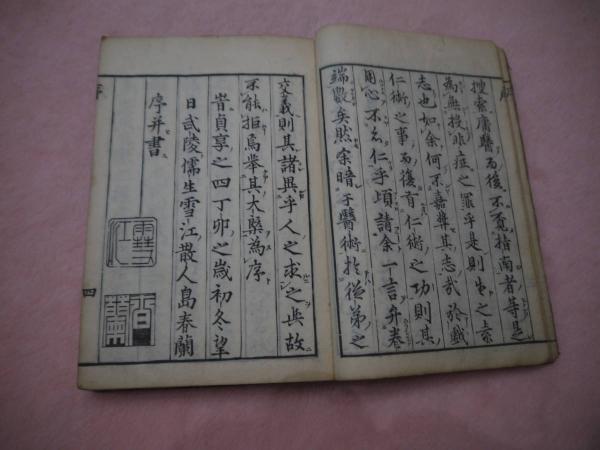 搜索庸醫而後不負指南者等是
為無投非症之罪乎是則生之素
志也如余何不嘉尚其志哉於戲
仁術之事而後有仁術之功則其
用心不名仁乎頃請余一言弁卷
端數矣然余暗于醫術於從弟之
交義則其諸異乎人之求之與故
不能拒焉舉其大槩為序
旹貞享之四丁卯之歲初冬望
日武陵儒生雪江散人島春蘭
序并書
雪江
春蘭
四